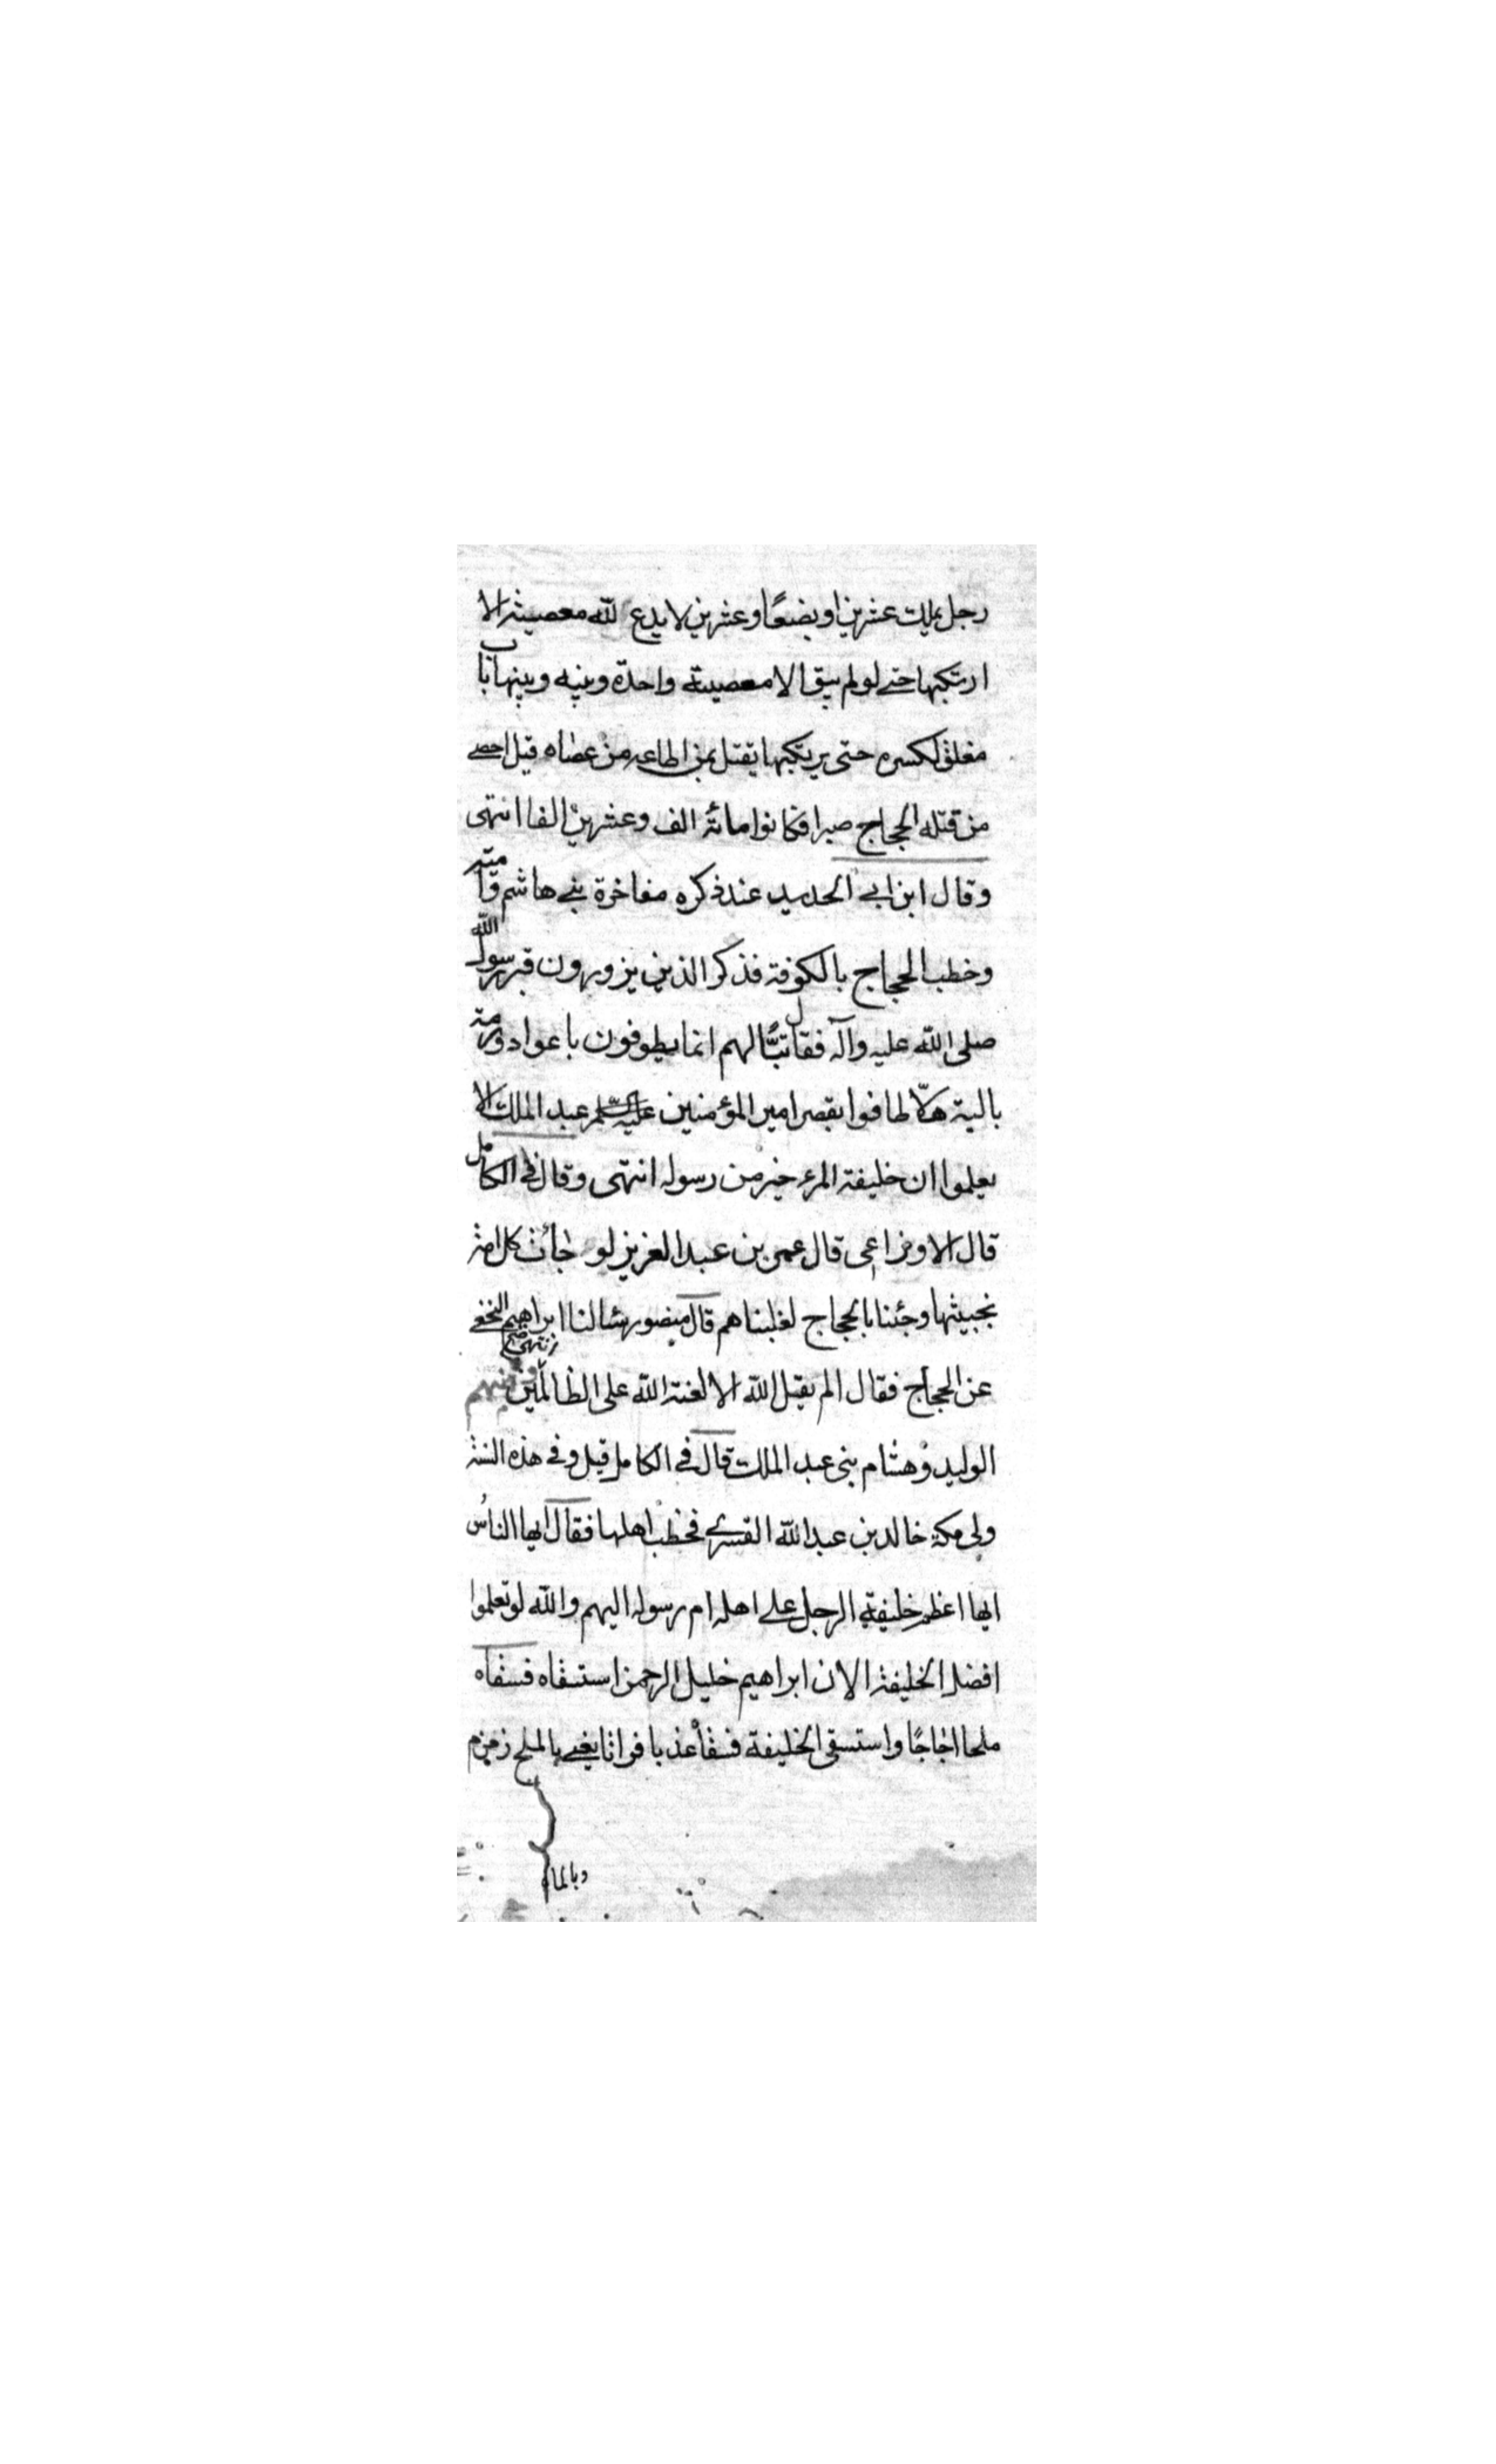 رجل يملك عشرين او بضعًا وعشرين لا يدع لله معصيته الا
ارتكبها حتى لو لم يبق الا معصيته واحدة وبينه وبينها باب
مغلق لكسره حتى يرتكبها يقتل بمن اطاعه من عصاه قيل احصى
من قتله الحجاج صبرا فكانوا مائة الف وعشرين الفا انتهى
وقال ابن ابي الحديد عند ذكره مفاخرة بني هاشم وامية
وخطب الحجاج بالكوفة فذكر الذين يزورون قبر رسول الله
صلى الله عليه وآله فقال تبًّا لهم انما يطوفون باعواد ورمة
بالية هلّا طافوا بقصر امير المؤمنين عبد الملك الا
يعلموا ان خليفة المرء خير من رسوله انتهى وقال في الكامل
قال الاوزاعي قال عمر بن عبد العزيز لو جائت كل امة
بخبيثها وجئنا بالحجاج لغلبناهم قال منصور سئالنا ابراهيم النخعي
عن الحجاج فقال الم يقل الله الا لعنة الله على الظالمين انتهى ومنهم
الوليد وهشام بني عبد الملك قال في الكامل قيل وفي هذه السنة
ولي مكة خالد بن عبد الله القسري فخطب اهلها فقال ايها الناس
ايها اعظم خليفة الرجل على اهله ام رسوله اليهم والله لو تعلموا
افضل الخليفة الا ان ابراهيم خليل الرحمن استسقاه فسقاه
ملحا اجاجًا واستسقى الخليفة فسقا عذبا فراتا يعني بالملح زمزم
وبالماء